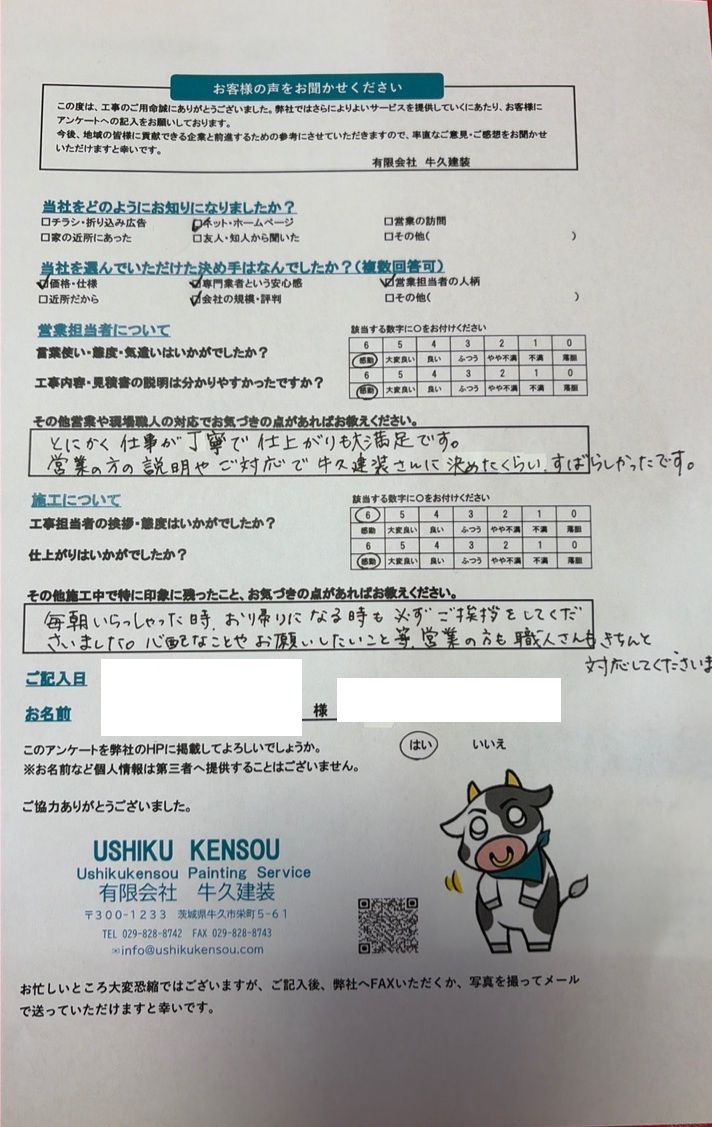 お客様の声をお聞かせください
この度は、工事のご用命誠にありがとうございました。弊社ではさらによりよいサービスを提供していくにあたり、お客様に
アンケートへの記入をお願いしております。
今後、地域の皆様に貢献できる企業と前進するための参考にさせていただきますので、率直なご意見・ご感想をお聞かせ
いただけますと幸いです。
有限会社 牛久建装
当社をどのようにお知りになりましたか？
□チラシ・折り込み広告 ☑ネット・ホームページ □営業の訪問
□家の近所にあった □友人・知人から聞いた □その他( )
当社を選んでいただけた決め手はなんでしたか？(複数回答可)
☑価格・仕様 ☑専門業者という安心感 ☑営業担当者の人柄
□近所だから ☑会社の規模・評判 □その他( )
営業担当者について 該当する数字に○をお付けください
言葉使い・態度・気遣いはいかがでしたか？ 6 5 4 3 2 1 0
感動 大変良い 良い ふつう やや不満 不満 落胆
工事内容・見積書の説明は分かりやすかったですか？ 6 5 4 3 2 1 0
感動 大変良い 良い ふつう やや不満 不満 落胆
その他営業や現場職人の対応でお気づきの点があればお教えください。
とにかく仕事が丁寧で仕上がりも大満足です。
営業の方の説明やご対応で牛久建装さんに決めたくらい、すばらしかったです。
施工について 該当する数字に○をお付けください
工事担当者の挨拶・態度はいかがでしたか？ 6 5 4 3 2 1 0
感動 大変良い 良い ふつう やや不満 不満 落胆
仕上がりはいかがでしたか？ 6 5 4 3 2 1 0
感動 大変良い 良い ふつう やや不満 不満 落胆
その他施工中で特に印象に残ったこと、お気づきの点があればお教えください。
毎朝いらっしゃった時、お帰りになる時も必ずご挨拶をしてくだ
さいました。心配なことやお願いしたいこと等、営業の方も職人さんもきちんと
対応してくださいま
ご記入日
お名前 様
このアンケートを弊社のHPに掲載してよろしいでしょうか。 はい いいえ
※お名前など個人情報は第三者へ提供することはございません。
ご協力ありがとうございました。
USHIKU KENSOU
Ushikukensou Painting Service
有限会社 牛久建装
〒300-1233 茨城県牛久市栄町5-61
TEL 029-828-8742 FAX 029-828-8743
✉info@ushikukensou.com
お忙しいところ大変恐縮ではございますが、ご記入後、弊社へFAXいただくか、写真を撮ってメール
で送っていただけますと幸いです。